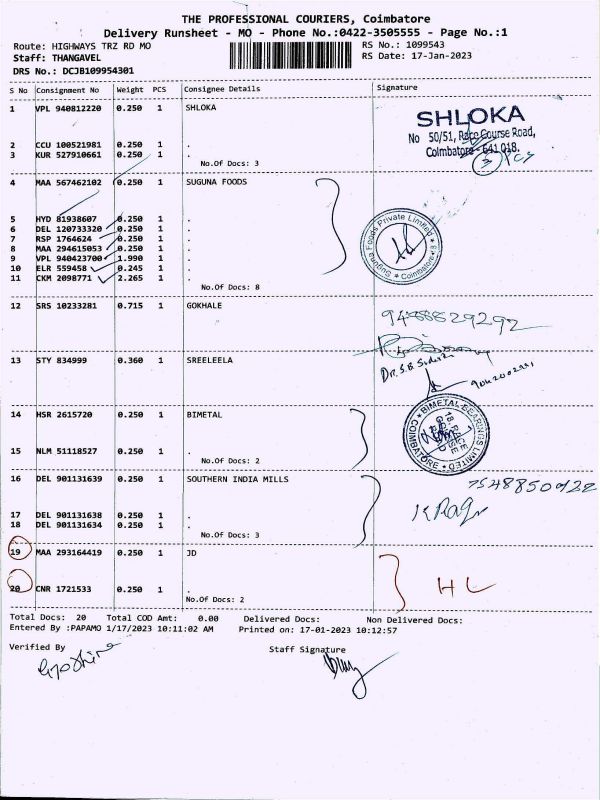 THE PROFESSIONAL COURIERS, Coimbatore
Delivery Runsheet - MO - Phone No.:0422-3505555 - Page No.:1
Route: HIGHWAYS TRZ RD MO
RS No.: 1099543
Staff: THANGAVEL
RS Date: 17-Jan-2023
DRS No.: DCJB109954301
S No Consignment No Weight PCS Consignee Details Signature
1 VPL 940812220 0.250 1 SHLOKA
SHLOKA
No 50/51, Race Course Road,
Coimbatore - 641 018.
3 PCS
2 CCU 100521981 0.250 1 .
3 KUR 527910661 0.250 1 .
No.Of Docs: 3
4 MAA 567462102 0.250 1 SUGUNA FOODS
Suguna Foods Private Limited
Coimbatore
5 HYD 81938607 0.250 1 .
6 DEL 120733320 0.250 1 .
7 RSP 1764624 0.250 1 .
8 MAA 294615053 0.250 1 .
9 VPL 940423700 1.990 1 .
10 ELR 559458 0.245 1 .
11 CKM 2098771 2.265 1 .
No.Of Docs: 8
12 SRS 10233281 0.715 1 GOKHALE
13 STY 834999 0.360 1 SREELEELA
14 HSR 2615720 0.250 1 BIMETAL
BIMETAL BEARINGS LIMITED
COIMBATORE
15 NLM 51118527 0.250 1 .
No.Of Docs: 2
16 DEL 901131639 0.250 1 SOUTHERN INDIA MILLS
17 DEL 901131638 0.250 1 .
18 DEL 901131634 0.250 1 .
No.Of Docs: 3
19 MAA 293164419 0.250 1 JD
HL
20 CNR 1721533 0.250 1 .
No.Of Docs: 2
Total Docs: 20 Total COD Amt: 0.00 Delivered Docs: Non Delivered Docs:
Entered By :PAPAMO 1/17/2023 10:11:02 AM Printed on: 17-01-2023 10:12:57
Verified By
Staff Signature